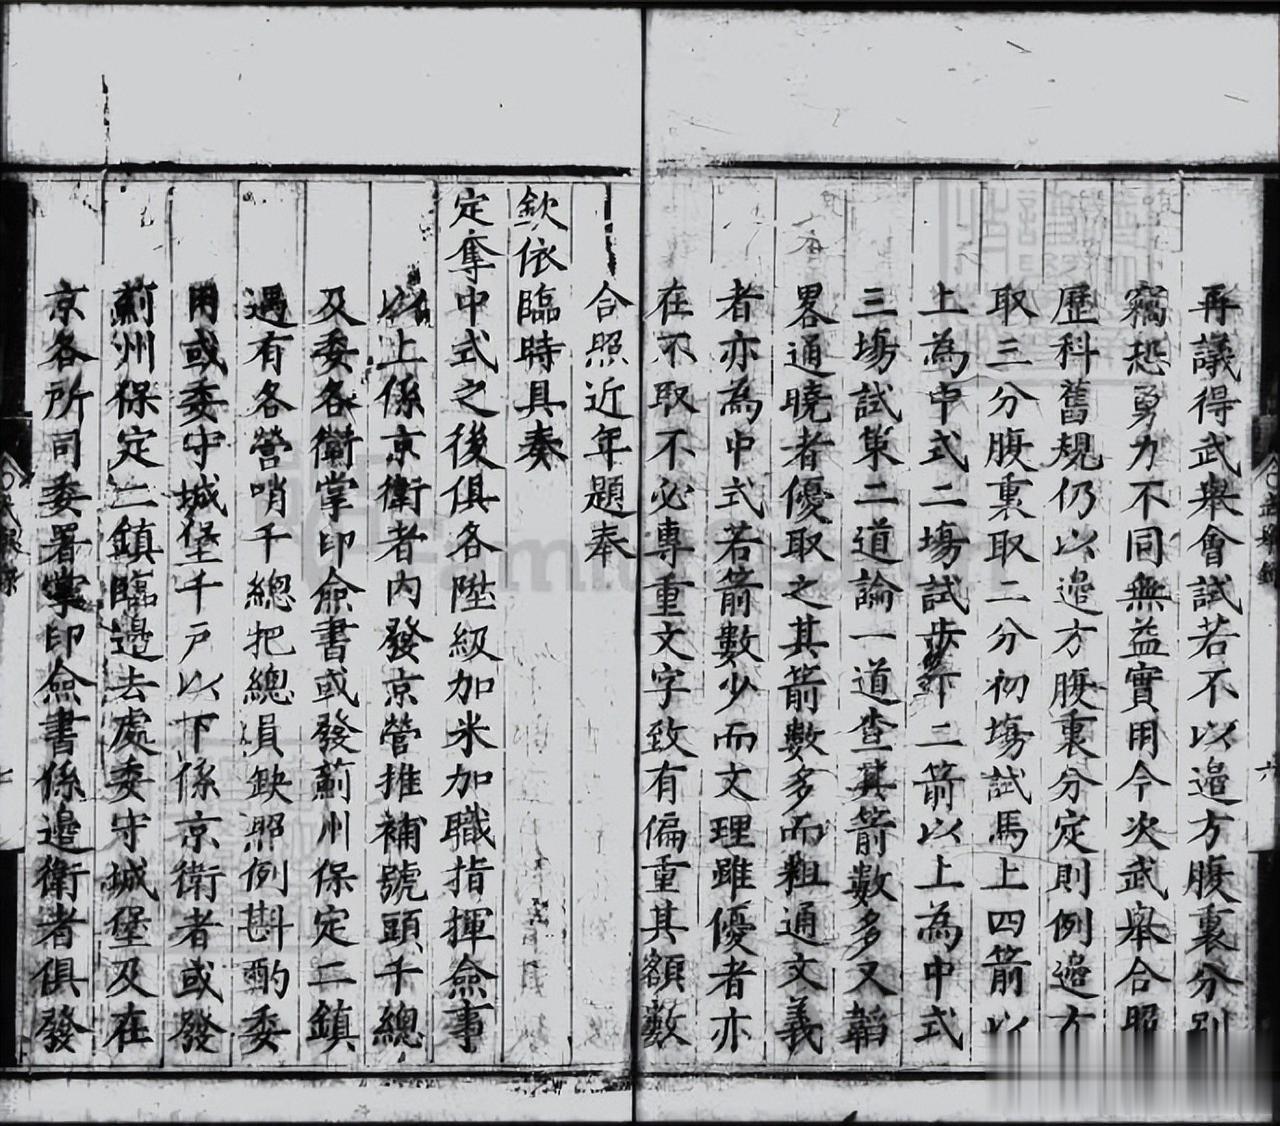 再議得武舉會試若不以邉方腹裏分别
竊恐勇力不同無益實用今次武舉合照
歷科舊規仍以邉方腹裏分定則例邉方
取三分腹裏取二分初塲試馬上四箭以
上為中式二塲試步下二箭以上為中式
三塲試策二道論一道查其箭數多又韜
畧通曉者優取之其箭數多而粗通文義
者亦為中式若箭數少而文理雖優者亦
在不取不必專重文字致有偏重其額數
合照近年題奉
欽依臨時具奏
定奪中式之後俱各陞級加米加職指揮僉事
以上係京衛者内發京營推補號頭千總
及委各衛掌印僉書或發薊州保定二鎮
遇有各營哨千總把總員缺照例斟酌委
用或委守城堡千戶以下係京衛者或發
薊州保定二鎮臨邉去處委守城堡及在
京各所司委署掌印僉書係邉衛者俱發